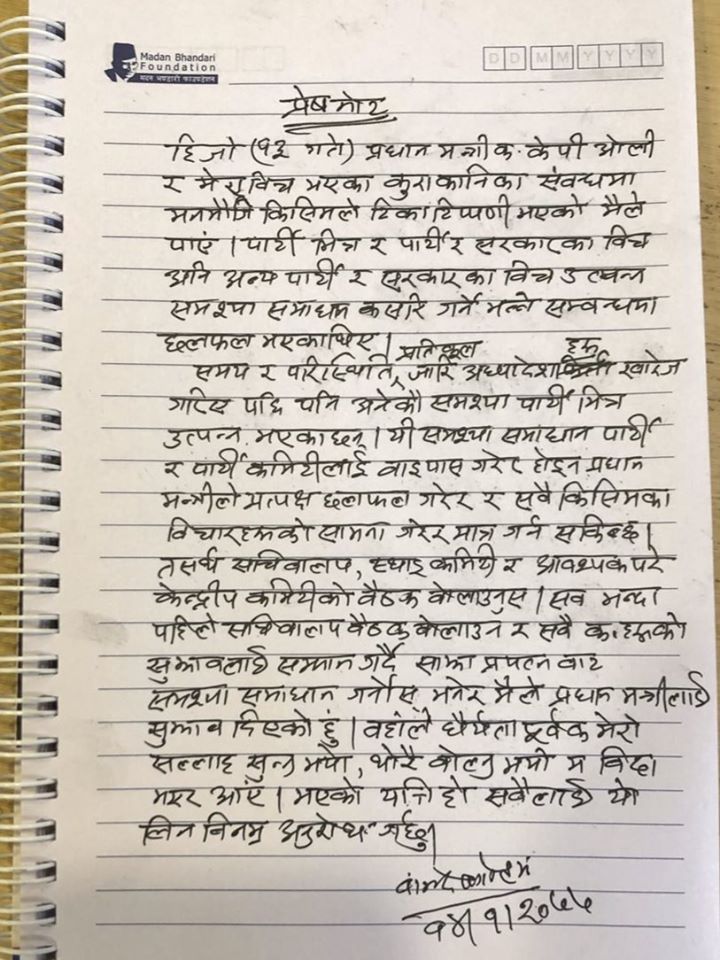 Madan Bhandari
Foundation
मदन भण्डारी फाउण्डेशन
D D M M Y Y Y Y
प्रेष नोट
हिजो (१३ गते) प्रधान मन्त्री क. केपी ओली
र मेरा विच भएका कुराकानिका संवन्धमा
मनमौजि किसिमले टिका टिप्पणी भएको मैले
पाएं । पार्टी भित्र र पार्टी र सरकारका विच
अनि अन्य पार्टी र सरकार का विच उत्पन्न
समश्या समाधान कसरि गर्ने भन्ने सम्वन्धमा
छलफल भएकाथिए ।
प्रतिकूल हरू
समय र परिस्थिति, जारि अध्यादेश खारेज
गरिए पछि पनि अनेकौ समश्या पार्टी भित्र
उत्पन्न भएका छन् । यी समश्या समाधान पार्टी
र पार्टी कमिटीलाई वाइपास गरेर होइन प्रधान
मन्त्रीले प्रत्यक्ष छलफल गरेर र सवै किसिमका
विचारहरूको सामना गरेर मात्र गर्न सकिन्छ ।
तसर्थ सचिवालय, स्थाइ कमिटी र आवश्यक परे
केन्द्रीय कमिटीको वैठक वोलाउनुस । सव भन्दा
पहिले सचिवालय वैठक वोलाउन र सवै क. हरूको
सुझावलाई सम्मान गर्दै साझा प्रयत्न वाट
समश्या समाधान गर्नोस् भनेर मैले प्रधान मन्त्रीलाई
सुझाव दिएको हुं । वहांले धैर्यता पूर्वक मेरो
सल्लाह सुन्नु भयो, थोरै वोल्नु भयो म विदा
भएर आंए । भएको यत्ति हो सवैलाई यो
लिन विनम्र अनुरोध गर्दछु ।
१४।१।२०७७